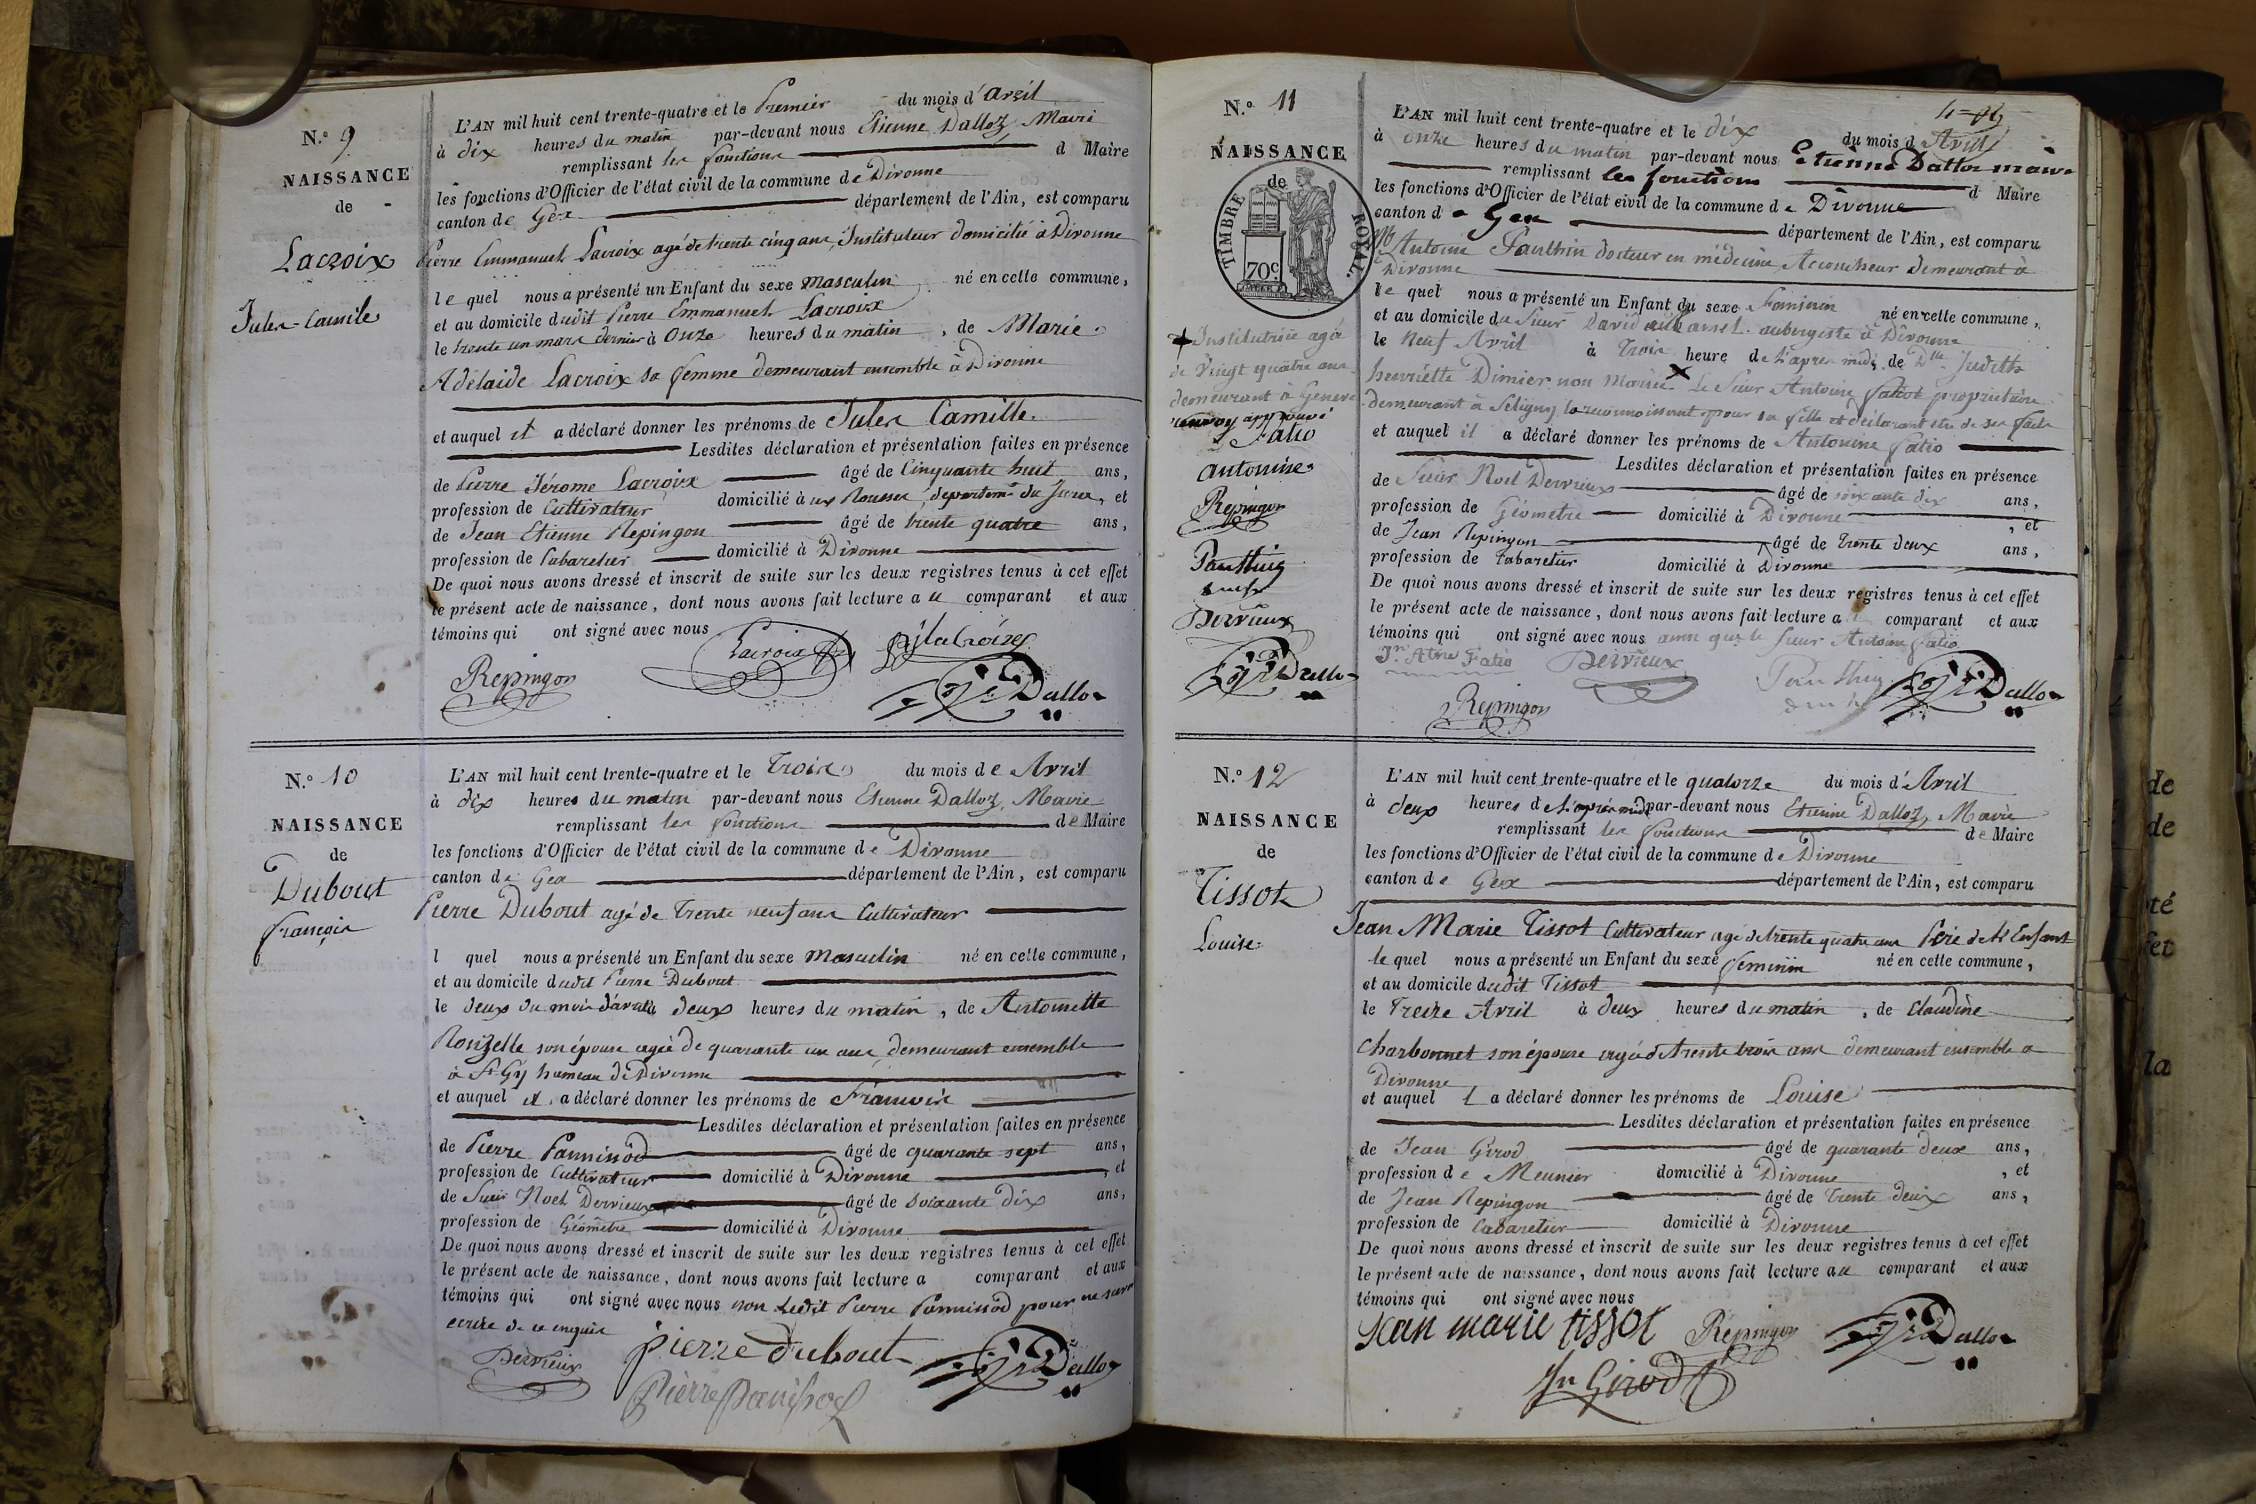 N.º 9
NAISSANCE
de
Lacroix
Jules-Camile
L'AN mil huit cent trente-quatre et le Premier du mois d'avril
à dix heures du matin par-devant nous Etienne Dalloz, Maire
remplissant les fonctions d Maire
les fonctions d'Officier de l'état civil de la commune de Divonne
canton de Gex département de l'Ain, est comparu
Pierre Emmanuel Lacroix agé de trente cinq ans, Instituteur domicilié à Divonne
le quel nous a présenté un Enfant du sexe masculin né en cette commune,
et au domicile dudit Pierre Emmanuel Lacroix
le trente un mars dernier à Onze heures du matin, de Marie
Adélaide Lacroix sa femme demeurant ensemble à Divonne
et auquel il a déclaré donner les prénoms de Jules Camille.
Lesdites déclaration et présentation faites en présence
de Pierre Jérome Lacroix âgé de Cinquante huit ans,
profession de Cultivateur domicilié à aux Rousses, departemt du Jura, et
de Jean Etienne Repingon âgé de trente quatre ans,
profession de Cabaretier domicilié à Divonne
De quoi nous avons dressé et inscrit de suite sur les deux registres tenus à cet effet
le présent acte de naissance, dont nous avons fait lecture au comparant et aux
témoins qui ont signé avec nous
Lacroix
Repingon
Dalloz
N.º 10
NAISSANCE
de
Dubout
françois
L'AN mil huit cent trente-quatre et le Trois du mois de Avril
à dix heures du matin par-devant nous Etienne Dalloz, Maire
remplissant les fonctions de Maire
les fonctions d'Officier de l'état civil de la commune de Divonne
canton de Gex département de l'Ain, est comparu
Pierre Dubout agé de Trente neuf ans Cultivateur
l quel nous a présenté un Enfant du sexe masculin né en cette commune,
et au domicile dudit Pierre Dubout
le deux du mois d'avril à deux heures du matin, de Antoinette
Ronzelle son épouse agée de quarante un ans, demeurant ensemble
à St Gy hameau de Divonne
et auquel il a déclaré donner les prénoms de François
Lesdites déclaration et présentation faites en présence
de Pierre Pannissod âgé de quarante sept ans,
profession de Cultivateur domicilié à Divonne, et
de Sieur Noel Dervieux âgé de soixante dix ans,
profession de Géomètre domicilié à Divonne
De quoi nous avons dressé et inscrit de suite sur les deux registres tenus à cet effet
le présent acte de naissance, dont nous avons fait lecture a comparant et aux
témoins qui ont signé avec nous non ledit Pierre Pannissod pour ne savoir
ecrire de ce enquis
Dervieux
pierre dubout
Dalloz
Pierre Panissod
N.º 11
NAISSANCE
de
TIMBRE ROYAL.
70c.
Institutrice agée
de vingt quatre ans
demeurant à Geneve
renvoy approuvé
Fatio
antonine
Repingon
Panthin
Dervieux
Dalloz
L'AN mil huit cent trente-quatre et le dix du mois d Avril
à onze heures du matin par-devant nous Etienne Dalloz maire
remplissant les fonctions d Maire
les fonctions d'Officier de l'état civil de la commune de Divonne
canton de Gex département de l'Ain, est comparu
Mr Antoine Panthin docteur en médecine Accoucheur demeurant à
Divonne
le quel nous a présenté un Enfant du sexe Feminin né en cette commune,
et au domicile du Sieur David aubergiste à Divonne
le Neuf Avril à Trois heure de l'apres midi, de Dlle Judith
henriette Dimier non Mariée Le Sieur Antoine fatio propriétaire
demeurant à Seligny la reconnoissant pour sa fille et déclarant être de ses faits
et auquel il a déclaré donner les prénoms de Antonine fatio
Lesdites déclaration et présentation faites en présence
de Sieur Noel Dervieux âgé de soixante dix ans,
profession de Géomètre domicilié à Divonne, et
de Jean Repingon âgé de trente deux ans,
profession de Cabaretier domicilié à Divonne
De quoi nous avons dressé et inscrit de suite sur les deux registres tenus à cet effet
le présent acte de naissance, dont nous avons fait lecture a comparant et aux
témoins qui ont signé avec nous ainsi que le sieur Antoine fatio
Jn Atne Fatio
Dervieux
Panthin
Dalloz
Repingon
N.º 12
NAISSANCE
de
Tissot
Louise
L'AN mil huit cent trente-quatre et le quatorze du mois d'Avril
à deux heures de l'après midi par-devant nous Etienne Dalloz, Maire
remplissant les fonctions de Maire
les fonctions d'Officier de l'état civil de la commune de Divonne
canton de Gex département de l'Ain, est comparu
Jean Marie Tissot Cultivateur agé de trente quatre ans Père de l'Enfant
le quel nous a présenté un Enfant du sexe feminin né en cette commune,
et au domicile dudit Tissot
le Treize Avril à deux heures du matin, de Claudine
Charbonnet son épouse agée de trente trois ans demeurant ensemble a
Divonne
et auquel l a déclaré donner les prénoms de Louise
Lesdites déclaration et présentation faites en présence
de Jean Girod âgé de quarante deux ans,
profession de Meunier domicilié à Divonne, et
de Jean Repingon âgé de Trente deux ans,
profession de Cabaretier domicilié à Divonne
De quoi nous avons dressé et inscrit de suite sur les deux registres tenus à cet effet
le présent acte de naissance, dont nous avons fait lecture au comparant et aux
témoins qui ont signé avec nous
jean marie tissot
Repingon
Dalloz
Jn Girod
de
de
té
fet
la